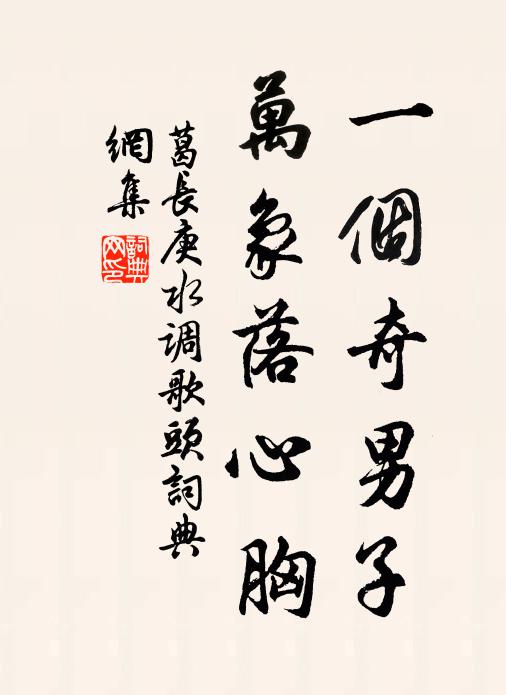 一個奇男子
萬象落心胸
葛長庚水调歌頭詞典
網集
詞典網印